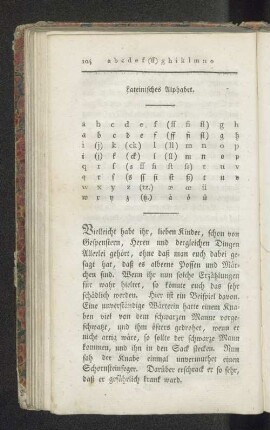 104 a b c d e f (ff) g h i k l m n o
Lateinisches Alphabet.
a b c d e f (ff fi fl) g h
a b c d e f (ff fi fl) g h
i (j) k (ck) l (ll) m n o p
i (j) k (ck) l (ll) m n o p
q r s (ss si st) t u v
q r s (ss si st) t u v
w x y z (tz.) ä ö ü
w x y z (tz.) ä ö ü
Vielleicht habt ihr, lieben Kinder, schon von
Gespenstern, Hexen und dergleichen Dingen
Allerlei gehört, ohne daß man euch dabei ge-
sagt hat, daß es alberne Possen und Mär-
chen sind. Wenn ihr nun solche Erzählungen
für wahr hieltet, so könnte euch das sehr
schädlich werden. Hier ist ein Beispiel davon.
Eine unverständige Wärterin hatte einem Kna-
ben viel von dem schwarzen Manne vorge-
schwatzt, und ihm öfters gedrohet, wenn er
nicht artig wäre, so sollte der schwarze Mann
kommen, und ihn in den Sack stecken. Nun
sah der Knabe einmal unvermuthet einen
Schornsteinfeger. Darüber erschrack er so sehr,
daß er gefährlich krank ward.